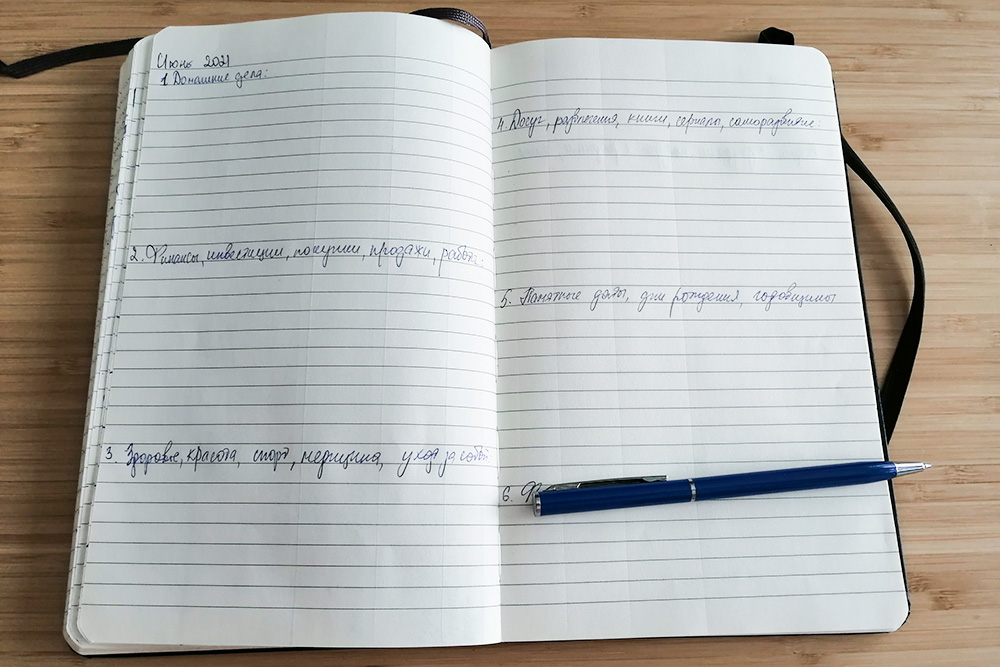 Июнь 2021
1. Домашние дела:
2. Финансы, инвестиции, покупки, продажи, работа.
3. Здоровье, красота, спорт, медицина, уход за собой
4. Досуг, развлечения, книги, сериалы, саморазвитие
5. Памятные даты, дни рождения, годовщины
6.